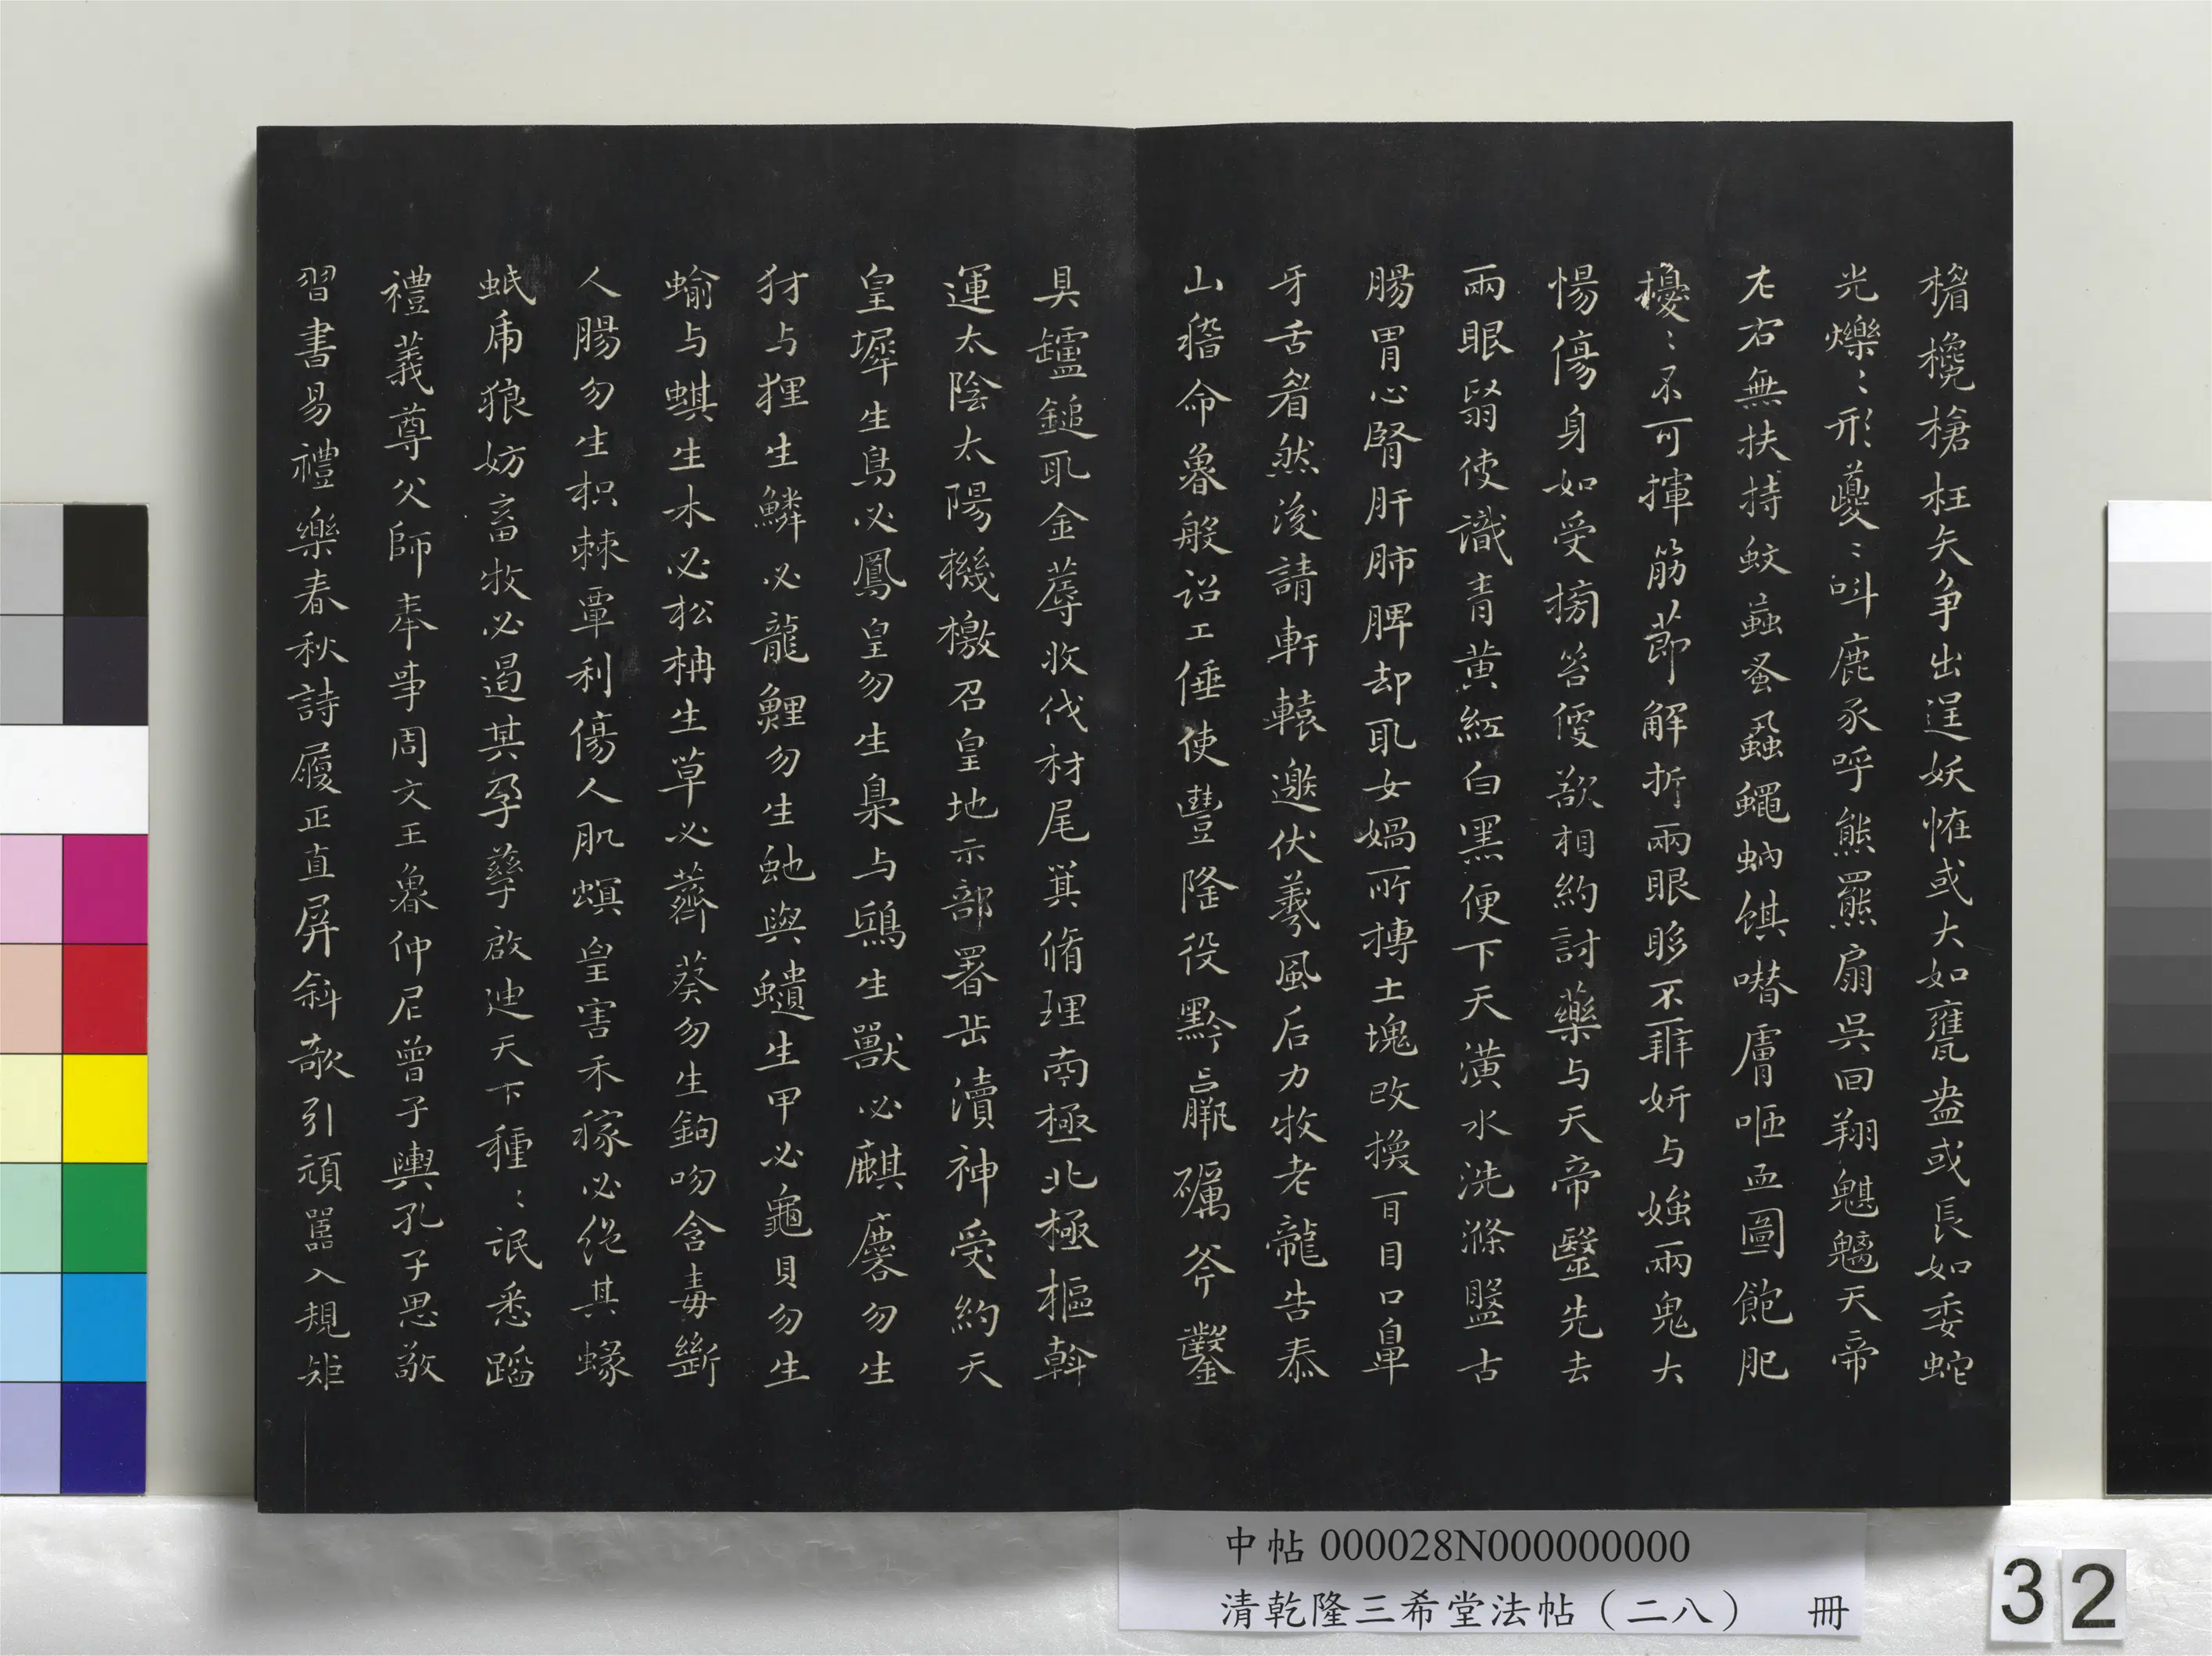 欃槍枉矢争出逞妖恠或大如甕盎或長如委蛇
光爍〻形躨〻呌鹿豕呼熊羆扇吳回翔魌魑天帝
左右無扶持蚊蝱蚤蝨蠅蚋蜞噆膚咂血圖飽肥
擾〻不可揮筋節解折兩眼眵不辨妍与媸兩鬼大
惕傷身如受搒笞便欲相約討藥与天帝醫先去
兩眼翳使識青黄紅白黑便下天潢水洗滌盤古
腸胃心腎肝肺脾却取女媧所摶土塊改換百目口鼻
牙舌眉然後請軒轅邀伏羲風后力牧老龍告泰
山稽命魯般詔工倕使豐隆役黔羸礪斧鑿
具鑪鎚取金蓐收伐材尾箕脩理南極北極樞斡
運太陰太陽機檄召皇地示部署岳瀆神受約天
皇墀生鳥必鳳皇勿生梟与鴟生獸必麒麐勿生
豺与狸生鱗必龍鯉勿生虵與蟥生甲必龜貝勿生
蝓与蜞生木必松柟生草必薺葵勿生鉤吻含毒斷
人腸勿生枳棘覃利傷人肌螟皇害禾稼必絶其蝝
蚳乕狼妨畜牧必遏其孕孳啟迪天下種〻氓悉蹈
禮義尊父師奉事周文王魯仲尼曾子輿孔子思敬
習書易禮樂春秋詩履正直屏斜欹引頑嚚入規矩
中帖 000028N000000000
清乾隆三希堂法帖（二八） 冊
32